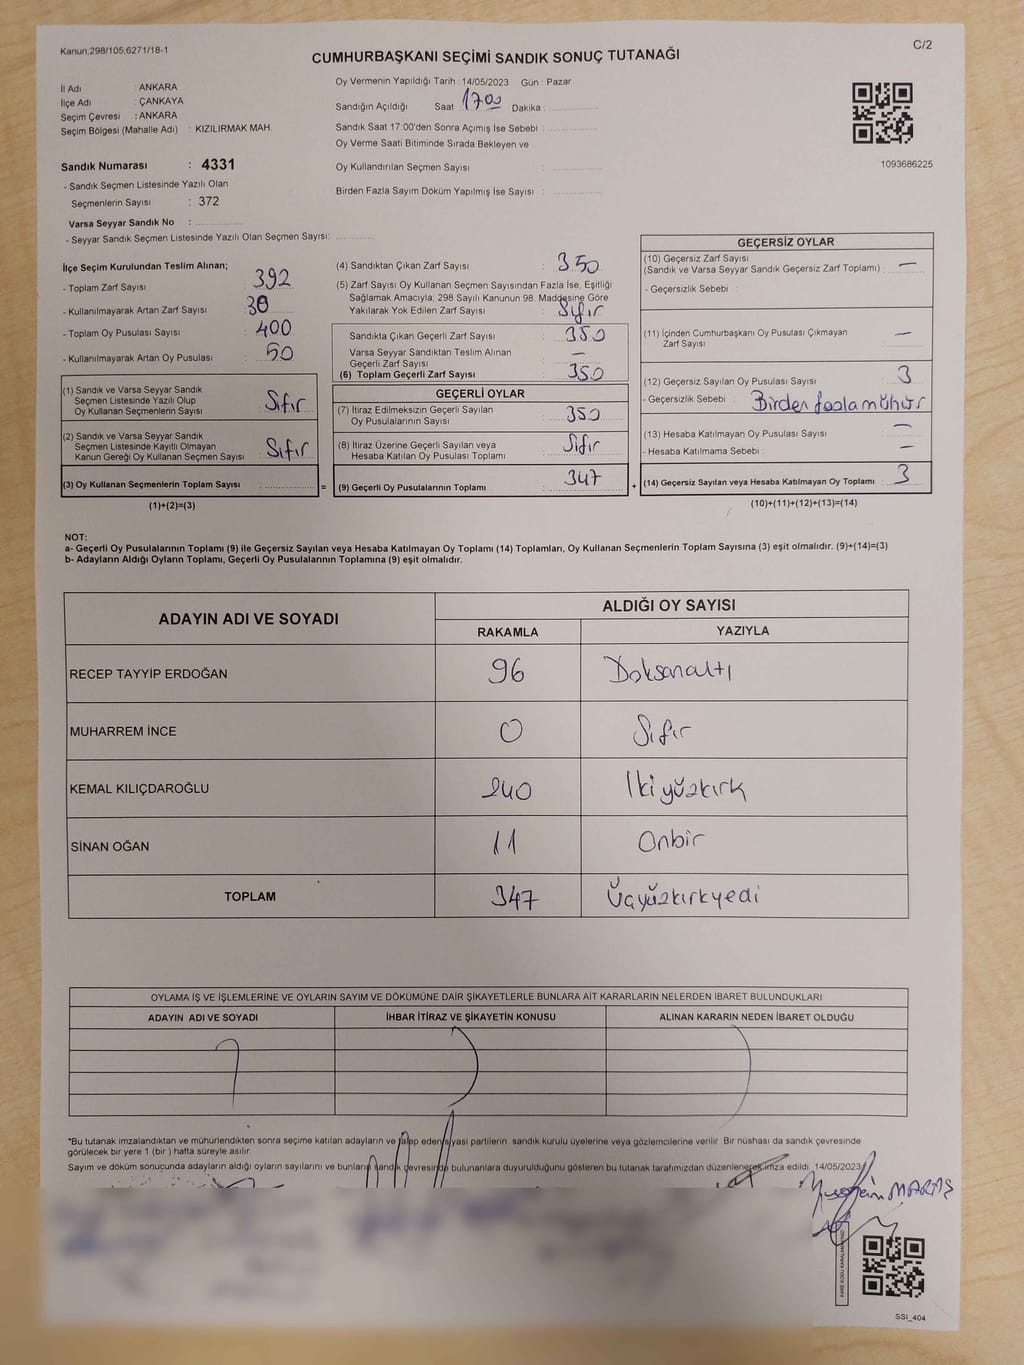 Kanun;298/105;6271/18-1
C/2
CUMHURBAŞKANI SEÇİMİ SANDIK SONUÇ TUTANAĞI
İl Adı : ANKARA
İlçe Adı : ÇANKAYA
Seçim Çevresi : ANKARA
Seçim Bölgesi (Mahalle Adı) : KIZILIRMAK MAH.
Sandık Numarası : 4331
- Sandık Seçmen Listesinde Yazılı Olan
Seçmenlerin Sayısı : 372
Varsa Seyyar Sandık No :
- Seyyar Sandık Seçmen Listesinde Yazılı Olan Seçmen Sayısı:
Oy Vermenin Yapıldığı Tarih : 14/05/2023 Gün : Pazar
Sandığın Açıldığı Saat : 17:00 Dakika :
Sandık Saat 17:00'den Sonra Açımış İse Sebebi :
Oy Verme Saati Bitiminde Sırada Bekleyen ve
Oy Kullandırılan Seçmen Sayısı :
Birden Fazla Sayım Döküm Yapılmış İse Sayısı :
1093686225
İlçe Seçim Kurulundan Teslim Alınan;
- Toplam Zarf Sayısı : 392
- Kullanılmayarak Artan Zarf Sayısı :
- Toplam Oy Pusulası Sayısı : 400
- Kullanılmayarak Artan Oy Pusulası : 50
(1) Sandık ve Varsa Seyyar Sandık
Seçmen Listesinde Yazılı Olup
Oy Kullanan Seçmenlerin Sayısı : Sıfır
(2) Sandık ve Varsa Seyyar Sandık
Seçmen Listesinde Kayıtlı Olmayan
Kanun Gereği Oy Kullanan Seçmen Sayısı : Sıfır
(3) Oy Kullanan Seçmenlerin Toplam Sayısı :
(1)+(2)=(3)
=
(4) Sandıktan Çıkan Zarf Sayısı : 350
(5) Zarf Sayısı Oy Kullanan Seçmen Sayısından Fazla İse, Eşitliği
Sağlamak Amacıyla; 298 Sayılı Kanunun 98. Maddesine Göre
Yakılarak Yok Edilen Zarf Sayısı : Sıfır
Sandıkta Çıkan Geçerli Zarf Sayısı : 350
Varsa Seyyar Sandıktan Teslim Alınan
Geçerli Zarf Sayısı : —
(6) Toplam Geçerli Zarf Sayısı : 350
GEÇERLİ OYLAR
(7) İtiraz Edilmeksizin Geçerli Sayılan
Oy Pusulalarının Sayısı : 350
(8) İtiraz Üzerine Geçerli Sayılan veya
Hesaba Katılan Oy Pusulası Toplamı : Sıfır
(9) Geçerli Oy Pusulalarının Toplamı : 347
+
GEÇERSİZ OYLAR
(10) Geçersiz Zarf Sayısı
(Sandık ve Varsa Seyyar Sandık Geçersiz Zarf Toplamı) : —
- Geçersizlik Sebebi :
(11) İçinden Cumhurbaşkanı Oy Pusulası Çıkmayan
Zarf Sayısı : —
(12) Geçersiz Sayılan Oy Pusulası Sayısı : 3
- Geçersizlik Sebebi : Birden fazla mühür
(13) Hesaba Katılmayan Oy Pusulası Sayısı : —
- Hesaba Katılmama Sebebi : —
(14) Geçersiz Sayılan veya Hesaba Katılmayan Oy Toplamı : 3
(10)+(11)+(12)+(13)=(14)
NOT:
a- Geçerli Oy Pusulalarının Toplamı (9) ile Geçersiz Sayılan veya Hesaba Katılmayan Oy Toplamı (14) Toplamları, Oy Kullanan Seçmenlerin Toplam Sayısına (3) eşit olmalıdır. (9)+(14)=(3)
b- Adayların Aldığı Oyların Toplamı, Geçerli Oy Pusulalarının Toplamına (9) eşit olmalıdır.
ADAYIN ADI VE SOYADI
ALDIĞI OY SAYISI
RAKAMLA YAZIYLA
RECEP TAYYİP ERDOĞAN 96 Doksanaltı
MUHARREM İNCE 0 Sıfır
KEMAL KILIÇDAROĞLU 240 İkiyüzkırk
SİNAN OĞAN 11 Onbir
TOPLAM 347 Üçyüzkırkyedi
OYLAMA İŞ VE İŞLEMLERİNE VE OYLARIN SAYIM VE DÖKÜMÜNE DAİR ŞİKAYETLERLE BUNLARA AİT KARARLARIN NELERDEN İBARET BULUNDUKLARI
ADAYIN ADI VE SOYADI İHBAR İTİRAZ VE ŞİKAYETİN KONUSU ALINAN KARARIN NEDEN İBARET OLDUĞU
*Bu tutanak imzalandıktan ve mühürlendikten sonra seçime katılan adayların ve talep eden siyasi partilerin sandık kurulu üyelerine veya gözlemcilerine verilir. Bir nüshası da sandık çevresinde
görülecek bir yere 1 (bir ) hafta süreyle asılır.
Sayım ve döküm sonucunda adayların aldığı oyların sayılarını ve bunların sandık çevresinde bulunanlara duyurulduğunu gösteren bu tutanak tarafımızdan düzenlenerek imza edildi. 14/05/2023
SSI_404